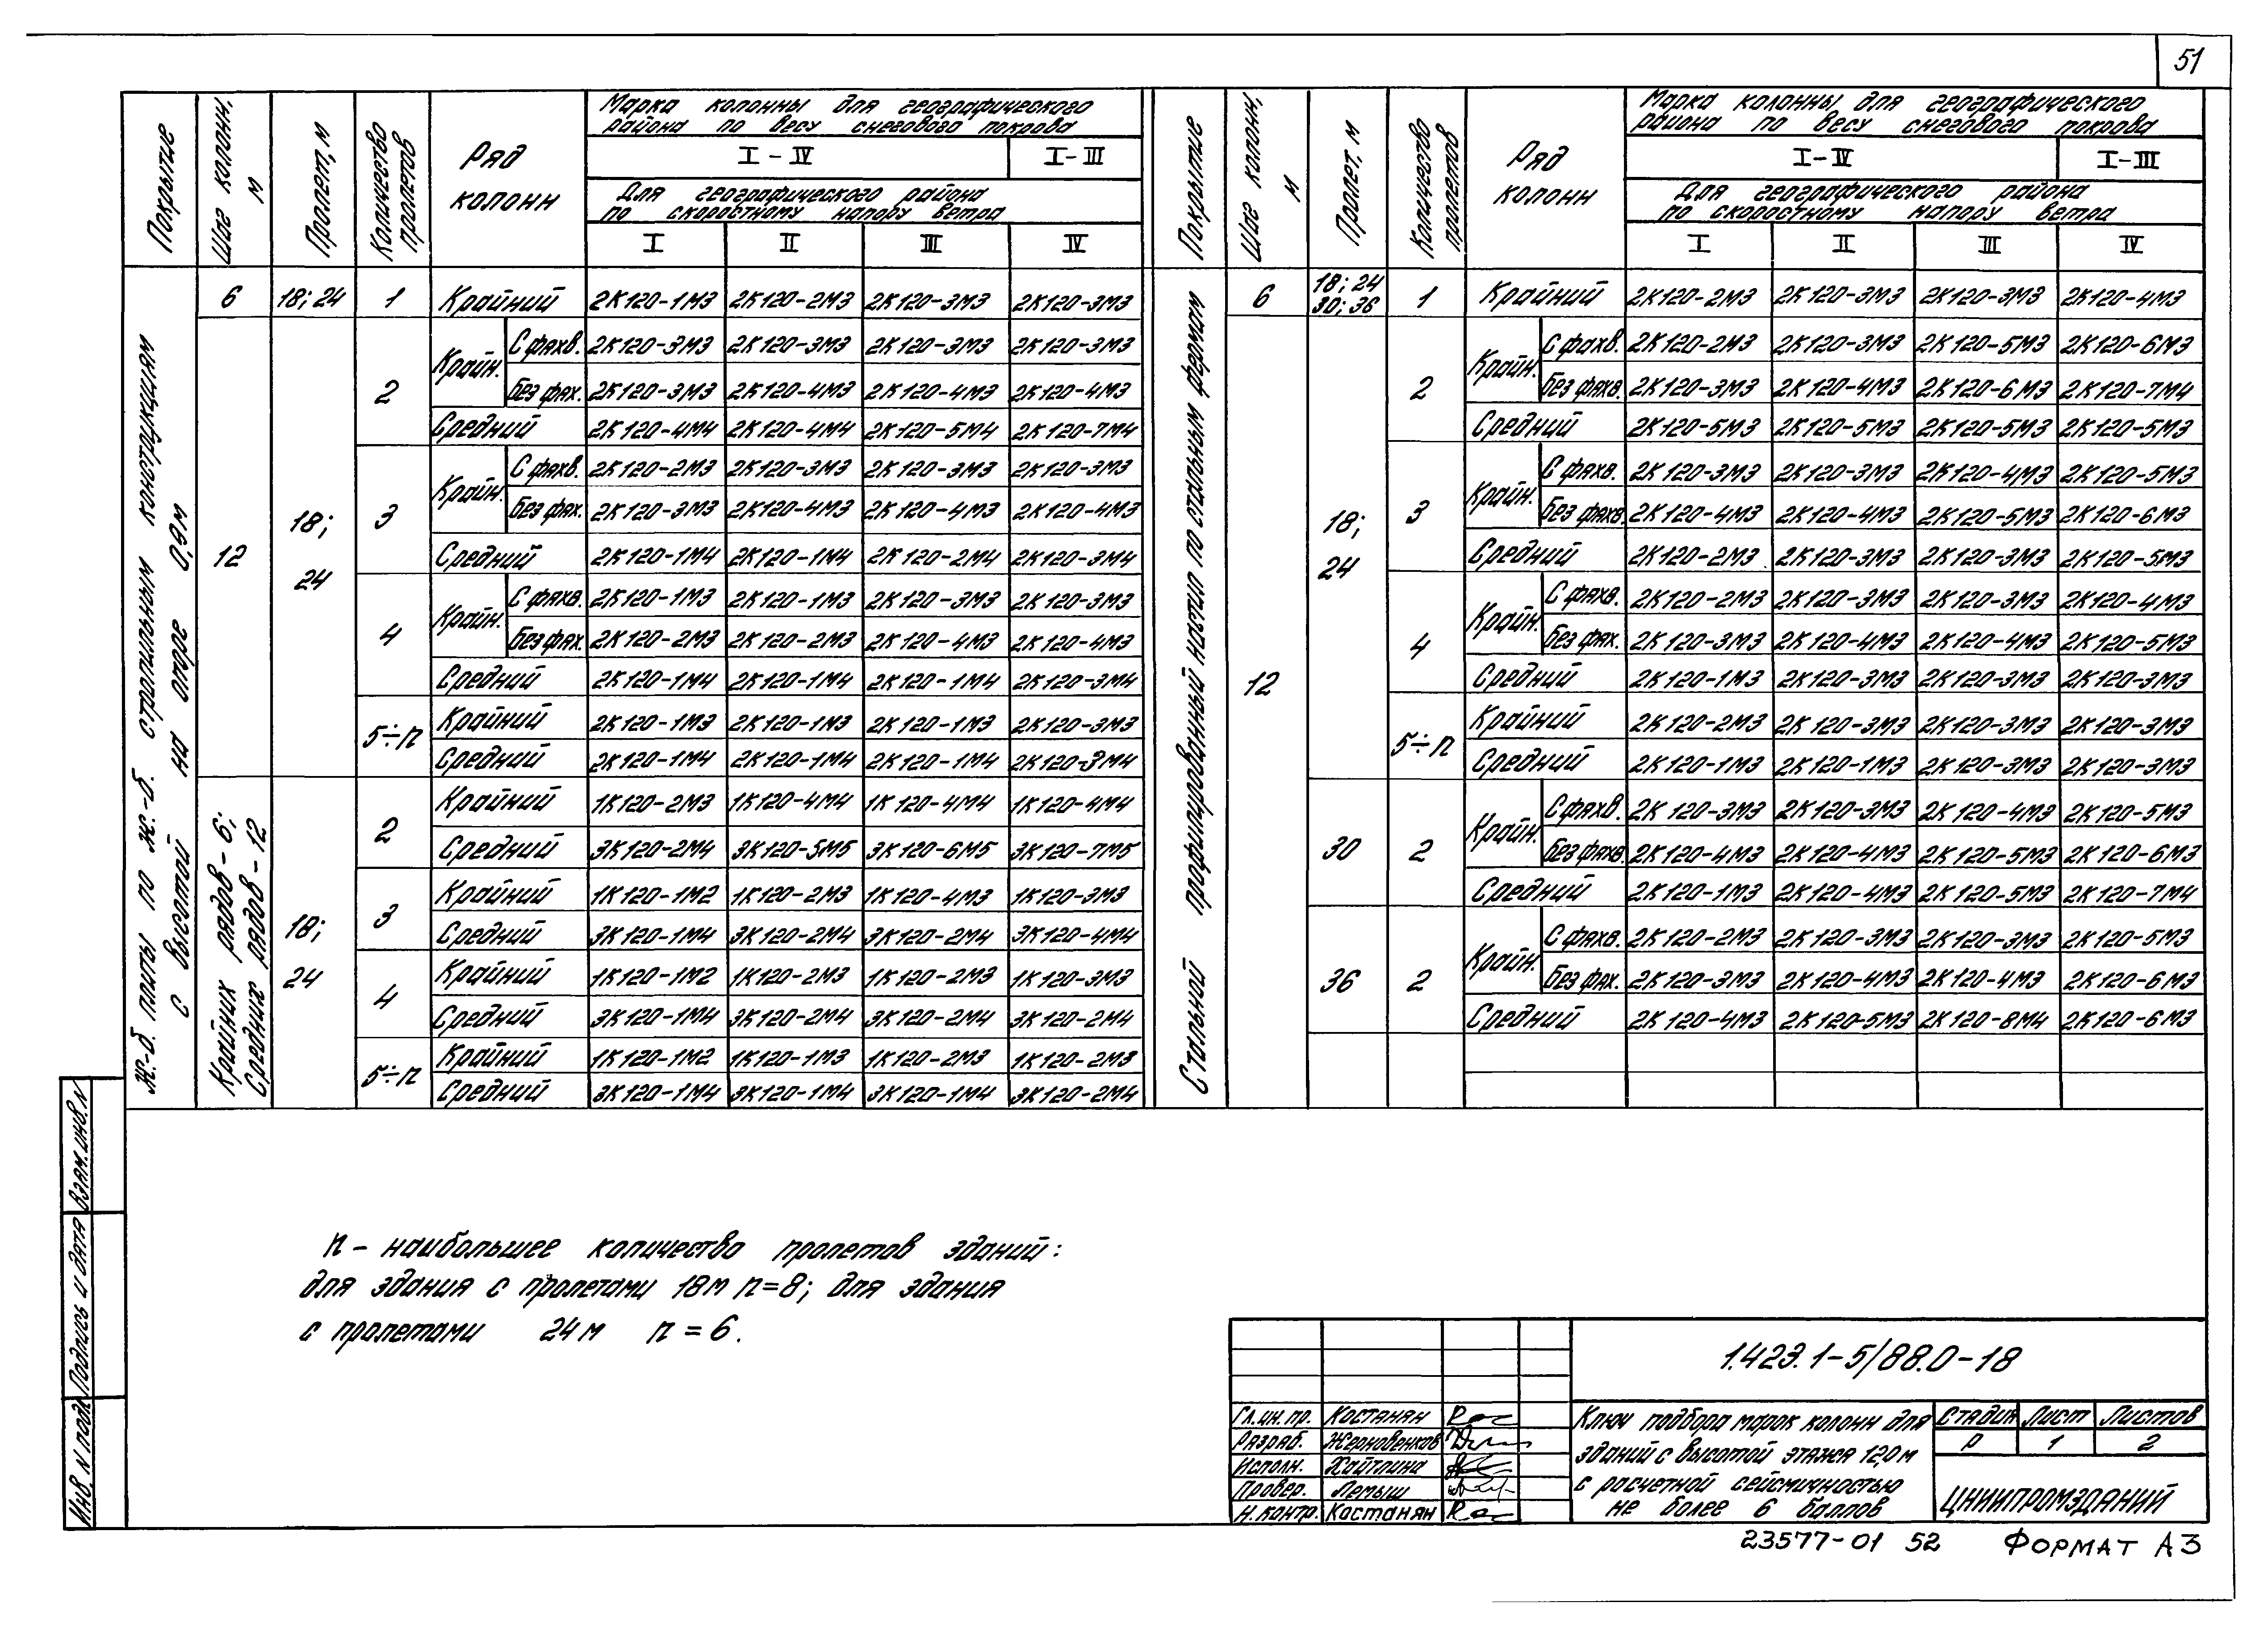 51
Покрытие
Шаг колонн, м
Пролет, м
Количество пролетов
Ряд колонн
Марка колонны для географического
района по весу снегового покрова
I - IV I - III
Для географического района
по скоростному напору ветра
I II III IV
Ж.-б. плиты по ж.-б. стропильным конструкциям
с высотой на опоре 0,9м
6 18; 24 1 Крайний 2К120-1М3 2К120-2М3 2К120-3М3 2К120-3М3
12 18; 24
2 Крайн. С фахв. 2К120-3М3 2К120-3М3 2К120-3М3 2К120-3М3
Без фах. 2К120-3М3 2К120-4М3 2К120-4М3 2К120-4М3
Средний 2К120-4М4 2К120-4М4 2К120-5М4 2К120-7М4
3 Крайн. С фахв. 2К120-2М3 2К120-3М3 2К120-3М3 2К120-3М3
Без фах. 2К120-3М3 2К120-4М3 2К120-4М3 2К120-4М3
Средний 2К120-1М4 2К120-1М4 2К120-2М4 2К120-3М4
4 Крайн. С фахв. 2К120-1М3 2К120-1М3 2К120-3М3 2К120-3М3
Без фах. 2К120-2М3 2К120-2М3 2К120-4М3 2К120-4М3
Средний 2К120-1М4 2К120-1М4 2К120-1М4 2К120-3М4
5÷n Крайний 2К120-1М3 2К120-1М3 2К120-1М3 2К120-3М3
Средний 2К120-1М4 2К120-1М4 2К120-1М4 2К120-3М4
Крайних рядов - 6;
Средних рядов - 12
18; 24
2 Крайний 1К120-2М3 1К120-4М4 1К120-4М4 1К120-4М4
Средний 3К120-2М4 3К120-5М5 3К120-6М5 3К120-7М5
3 Крайний 1К120-1М2 1К120-2М3 1К120-4М3 1К120-3М3
Средний 3К120-1М4 3К120-2М4 3К120-2М4 3К120-4М4
4 Крайний 1К120-1М2 1К120-2М3 1К120-2М3 1К120-3М3
Средний 3К120-1М4 3К120-2М4 3К120-2М4 3К120-2М4
5÷n Крайний 1К120-1М2 1К120-1М3 1К120-2М3 1К120-2М3
Средний 3К120-1М4 3К120-1М4 3К120-1М4 3К120-2М4
Покрытие
Шаг колонн, м
Пролет, м
Количество пролетов
Ряд колонн
Марка колонны для географического
района по весу снегового покрова
I - IV I - III
Для географического района
по скоростному напору ветра
I II III IV
Стальной профилированный настил по стальным фермам
6 18; 24 30; 36 1 Крайний 2К120-2М3 2К120-3М3 2К120-3М3 2К120-4М3
12 18; 24
2 Крайн. С фахв. 2К120-2М3 2К120-3М3 2К120-5М3 2К120-6М3
Без фахв. 2К120-3М3 2К120-4М3 2К120-6М3 2К120-7М4
Средний 2К120-5М3 2К120-5М3 2К120-5М3 2К120-5М3
3 Крайн. С фахв. 2К120-3М3 2К120-3М3 2К120-4М3 2К120-5М3
Без фахв. 2К120-4М3 2К120-4М3 2К120-5М3 2К120-6М3
Средний 2К120-2М3 2К120-3М3 2К120-3М3 2К120-5М3
4 Крайн. С фахв. 2К120-2М3 2К120-3М3 2К120-3М3 2К120-4М3
Без фах. 2К120-3М3 2К120-4М3 2К120-4М3 2К120-5М3
Средний 2К120-1М3 2К120-3М3 2К120-3М3 2К120-3М3
5÷n Крайний 2К120-2М3 2К120-3М3 2К120-3М3 2К120-3М3
Средний 2К120-1М3 2К120-1М3 2К120-3М3 2К120-3М3
30 2 Крайн. С фахв. 2К120-3М3 2К120-3М3 2К120-4М3 2К120-5М3
Без фахв. 2К120-4М3 2К120-4М3 2К120-5М3 2К120-6М3
Средний 2К120-1М3 2К120-4М3 2К120-5М3 2К120-7М4
36 2 Крайн. С фахв. 2К120-2М3 2К120-3М3 2К120-3М3 2К120-5М3
Без фах. 2К120-3М3 2К120-4М3 2К120-4М3 2К120-6М3
Средний 2К120-4М3 2К120-5М3 2К120-8М4 2К120-6М3
n - наибольшее количество пролетов зданий:
для здания с пролетами 18м n=8; для здания
с пролетами 24м n=6.
Инв. N подл. Подпись и дата Взам. инв. N
1.423.1-5/88.0-18
Гл. ин. пр. Костанян
Разраб. Жерновенков
Исполн. Хайтлина
Провер. Лемыш
Н. контр. Костанян
Ключ подбора марок колонн для
зданий с высотой этажа 12,0м
с расчетной сейсмичностью
не более 6 баллов
Стадия Лист Листов
Р 1 2
ЦНИИПРОМЗДАНИЙ
23577-01 52 Формат А3